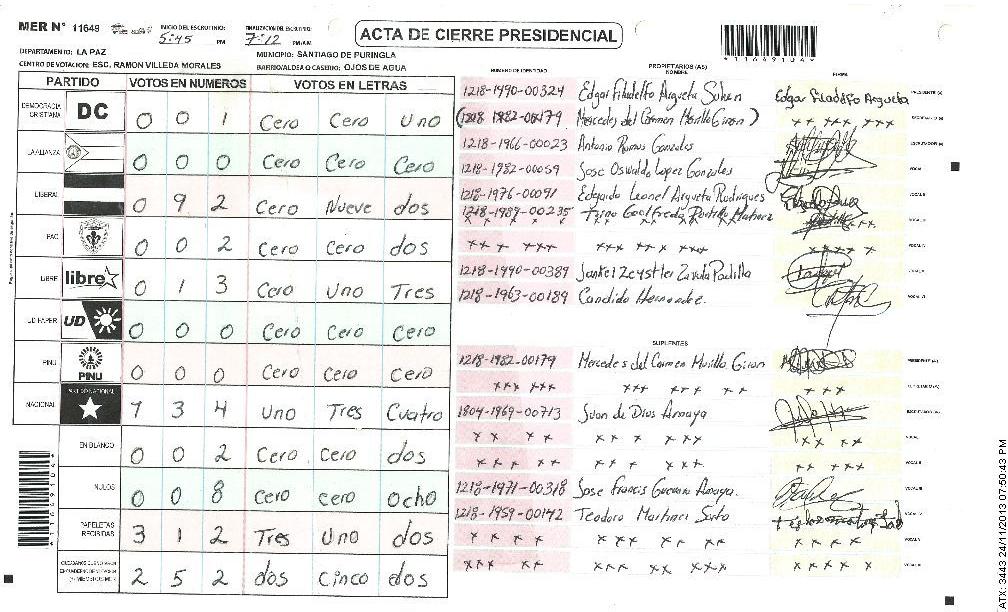 MER Nº 11649
INICIO DEL ESCRUTINIO: 5:45 PM
FINALIZACION DEL ESCRUTINIO: 7:12 PM/AM
ACTA DE CIERRE PRESIDENCIAL
*11649104*
DEPARTAMENTO: LA PAZ
MUNICIPIO: SANTIAGO DE PURINGLA
CENTRO DE VOTACION: ESC. RAMON VILLEDA MORALES
BARRIO/ALDEA O CASERIO: OJOS DE AGUA
PARTIDO VOTOS EN NUMEROS VOTOS EN LETRAS
DEMOCRACIA CRISTIANA DC 0 0 1 Cero Cero Uno
LA ALIANZA 0 0 0 Cero Cero Cero
LIBERAL 0 9 2 Cero Nueve dos
PAC 0 0 2 Cero Cero dos
LIBRE libre 0 1 3 Cero Uno Tres
UD PAPER UD 0 0 0 Cero Cero Cero
PINU PINU 0 0 0 Cero Cero Cero
NACIONAL PARTIDO NACIONAL 1 3 4 Uno Tres Cuatro
EN BLANCO 0 0 2 Cero Cero dos
NULOS 0 0 8 Cero Cero Ocho
PAPELETAS RECIBIDAS 3 1 2 Tres Uno dos
2 5 2 dos Cinco dos
NUMERO DE IDENTIDAD PROPIETARIOS (AS) NOMBRE FIRMA
1218-1990-00324 Edgar Filadelfo Argueta Edgar Filadelfo Argueta PRESIDENTE (A)
(1208 1982-00179 Mercedes del Carmen Murillo Giron) xx xxx xxx SECRETARIO (A)
1218-1966-00023 Antonio Ramos Gonzales ESCRUTADOR (A)
1218-1982-00059 Jose Oswaldo Lopez Gonzales VOCAL I
1218-1976-00091 Edgardo Leonel Argueta Rodrigues VOCAL II
1218-1987-00235 Martinez VOCAL III
xxx xxx xxx xx x xxx VOCAL IV
1218-1990-00389 Padilla VOCAL V
1218-1963-00189 Candido Hernandez VOCAL VI
SUPLENTES
1218-1982-00179 Mercedes del Carmen Murillo Giron PRESIDENTE (A)
xxx xxx xxx xxx x x xxx SECRETARIO (A)
1804-1969-00713 Juan de Dios Amaya ESCRUTADOR (A)
xx xx xx x xxx xx xx VOCAL I
xx xx xx x xxx xx xxx VOCAL II
1218-1971-00318 Jose Francis Guevara Amaya. VOCAL III
1218-1959-00142 Teodoro Martinez VOCAL IV
xx xx xxx xx xx xxxx VOCAL V
xxx xx xxx xx xxx xxxx x VOCAL VI
*11649104*
ATX: 3443 24/11/2013 07:50:43 PM